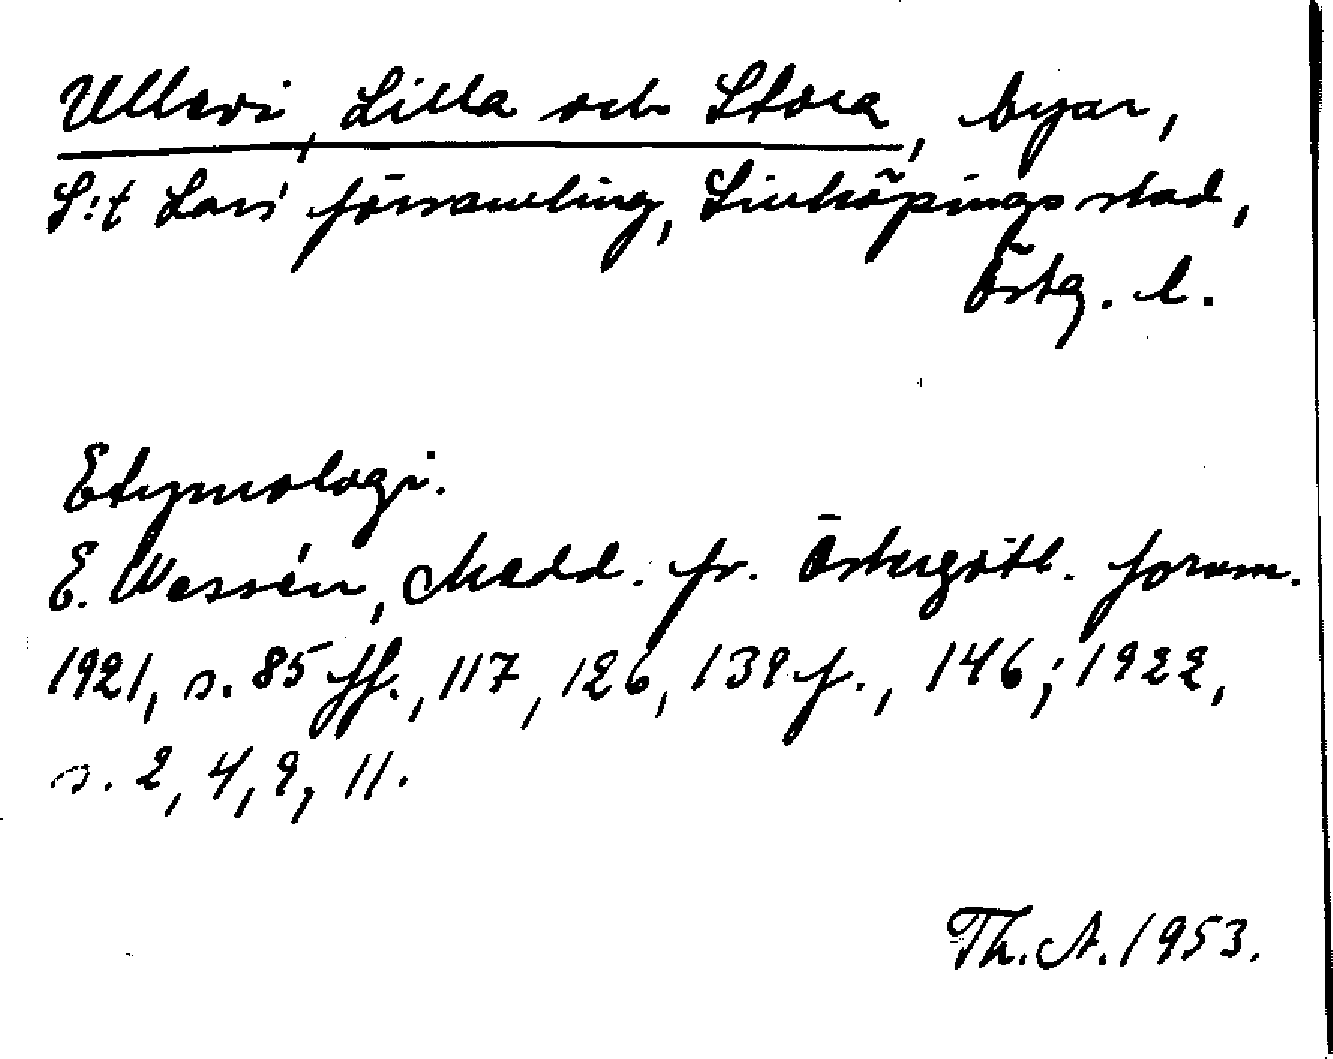 Ullevi, Lilla och Stora, byar,
S:t Lars' församling, Linköpings stad,
Östg. l.
Etymologi.
E. Wessén, Medd. fr. Östergötl. fornm.
1921, s. 85 ff., 117, 126, 139 f., 146; 1922,
s. 2, 4, 9, 11.
Th. A. 1953.